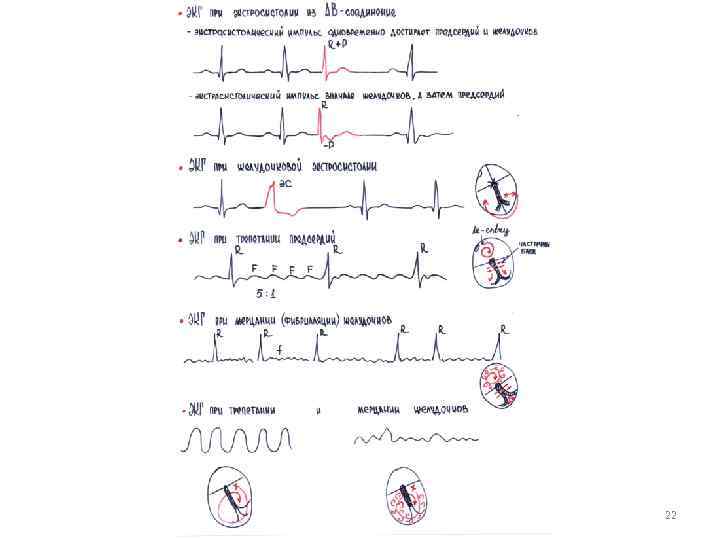 • ЭКГ при экстросистолии из АВ-соединение
- экстросистолический импульс одновременно достигает предсердий и желудочков
R+P
- экстросистолический импульс вначале желудочков, а затем предсердий
R
-P
• ЭКГ при желудочковой экстросистолии
ЭС
• ЭКГ при трепетании предсердий
R
R
R
F F F F
5:1
re-entry
• ЭКГ при мерцании (фибрилляции) желудочков
R
R
R
R
R
R
f
• ЭКГ при трепетании и мерцании желудочков
22